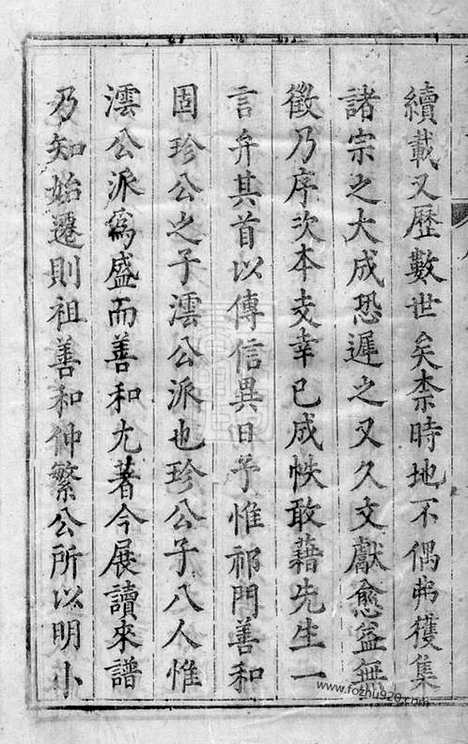 續載又歷數世矣柰時地不偶弗獲集
諸宗之大成恐遲之又久文獻愈益無
徵乃序次本支幸已成帙敢藉先生一
言弁其首以傳信異日予惟祁門善和
固珍公之子澐公派也珍公子八人惟
澐公派爲盛而善和尤著今展讀來譜
乃知始遷則祖善和仲繁公所以明小
www.fozhu920.com